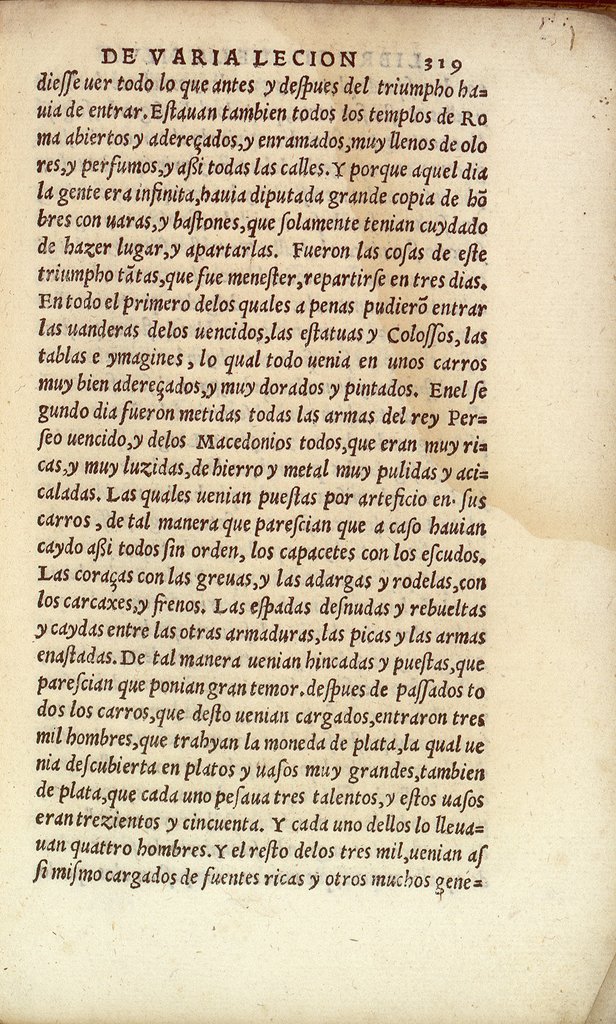 DE VARIA LECION 319
diesse uer todo lo que antes y despues del triumpho ha=
uia de entrar. Estauan tambien todos los templos de Ro
ma abiertos y adereçados, y enramados, muy llenos de olo
res, y perfumos, y aßi todas las calles. Y porque aquel dia
la gente era infinita, hauia diputada grande copia de hõ
bres con uaras, y bastones, que solamente tenian cuydado
de hazer lugar, y apartarlas. Fueron las cosas de este
triumpho tãtas, que fue menester, repartirse en tres dias.
En todo el primero delos quales a penas pudierõ entrar
las uanderas delos uencidos, las estatuas y Colossos, las
tablas e ymagines, lo qual todo uenia en unos carros
muy bien adereçados, y muy dorados y pintados. Enel se
gundo dia fueron metidas todas las armas del rey Per=
seo uencido, y delos Macedonios todos, que eran muy ri=
cas, y muy luzidas, de hierro y metal muy pulidas y aci=
caladas. Las quales uenian puestas por arteficio en sus
carros, de tal manera que parescian que a caso hauian
caydo aßi todos sin orden, los capacetes con los escudos.
Las coraças con las greuas, y las adargas y rodelas, con
los carcaxes, y frenos. Las espadas desnudas y rebueltas
y caydas entre las otras armaduras, las picas y las armas
enastadas. De tal manera uenian hincadas y puestas, que
parescian que ponian gran temor. despues de passados to
dos los carros, que desto uenian cargados, entraron tres
mil hombres, que trahyan la moneda de plata, la qual ue
nia descubierta en platos y uasos muy grandes, tambien
de plata, que cada uno pesaua tres talentos, y estos uasos
eran trezientos y cincuenta. Y cada uno dellos lo lleua=
uan quattro hombres. Y el resto delos tres mil, uenian as
si mismo cargados de fuentes ricas y otros muchos gene=